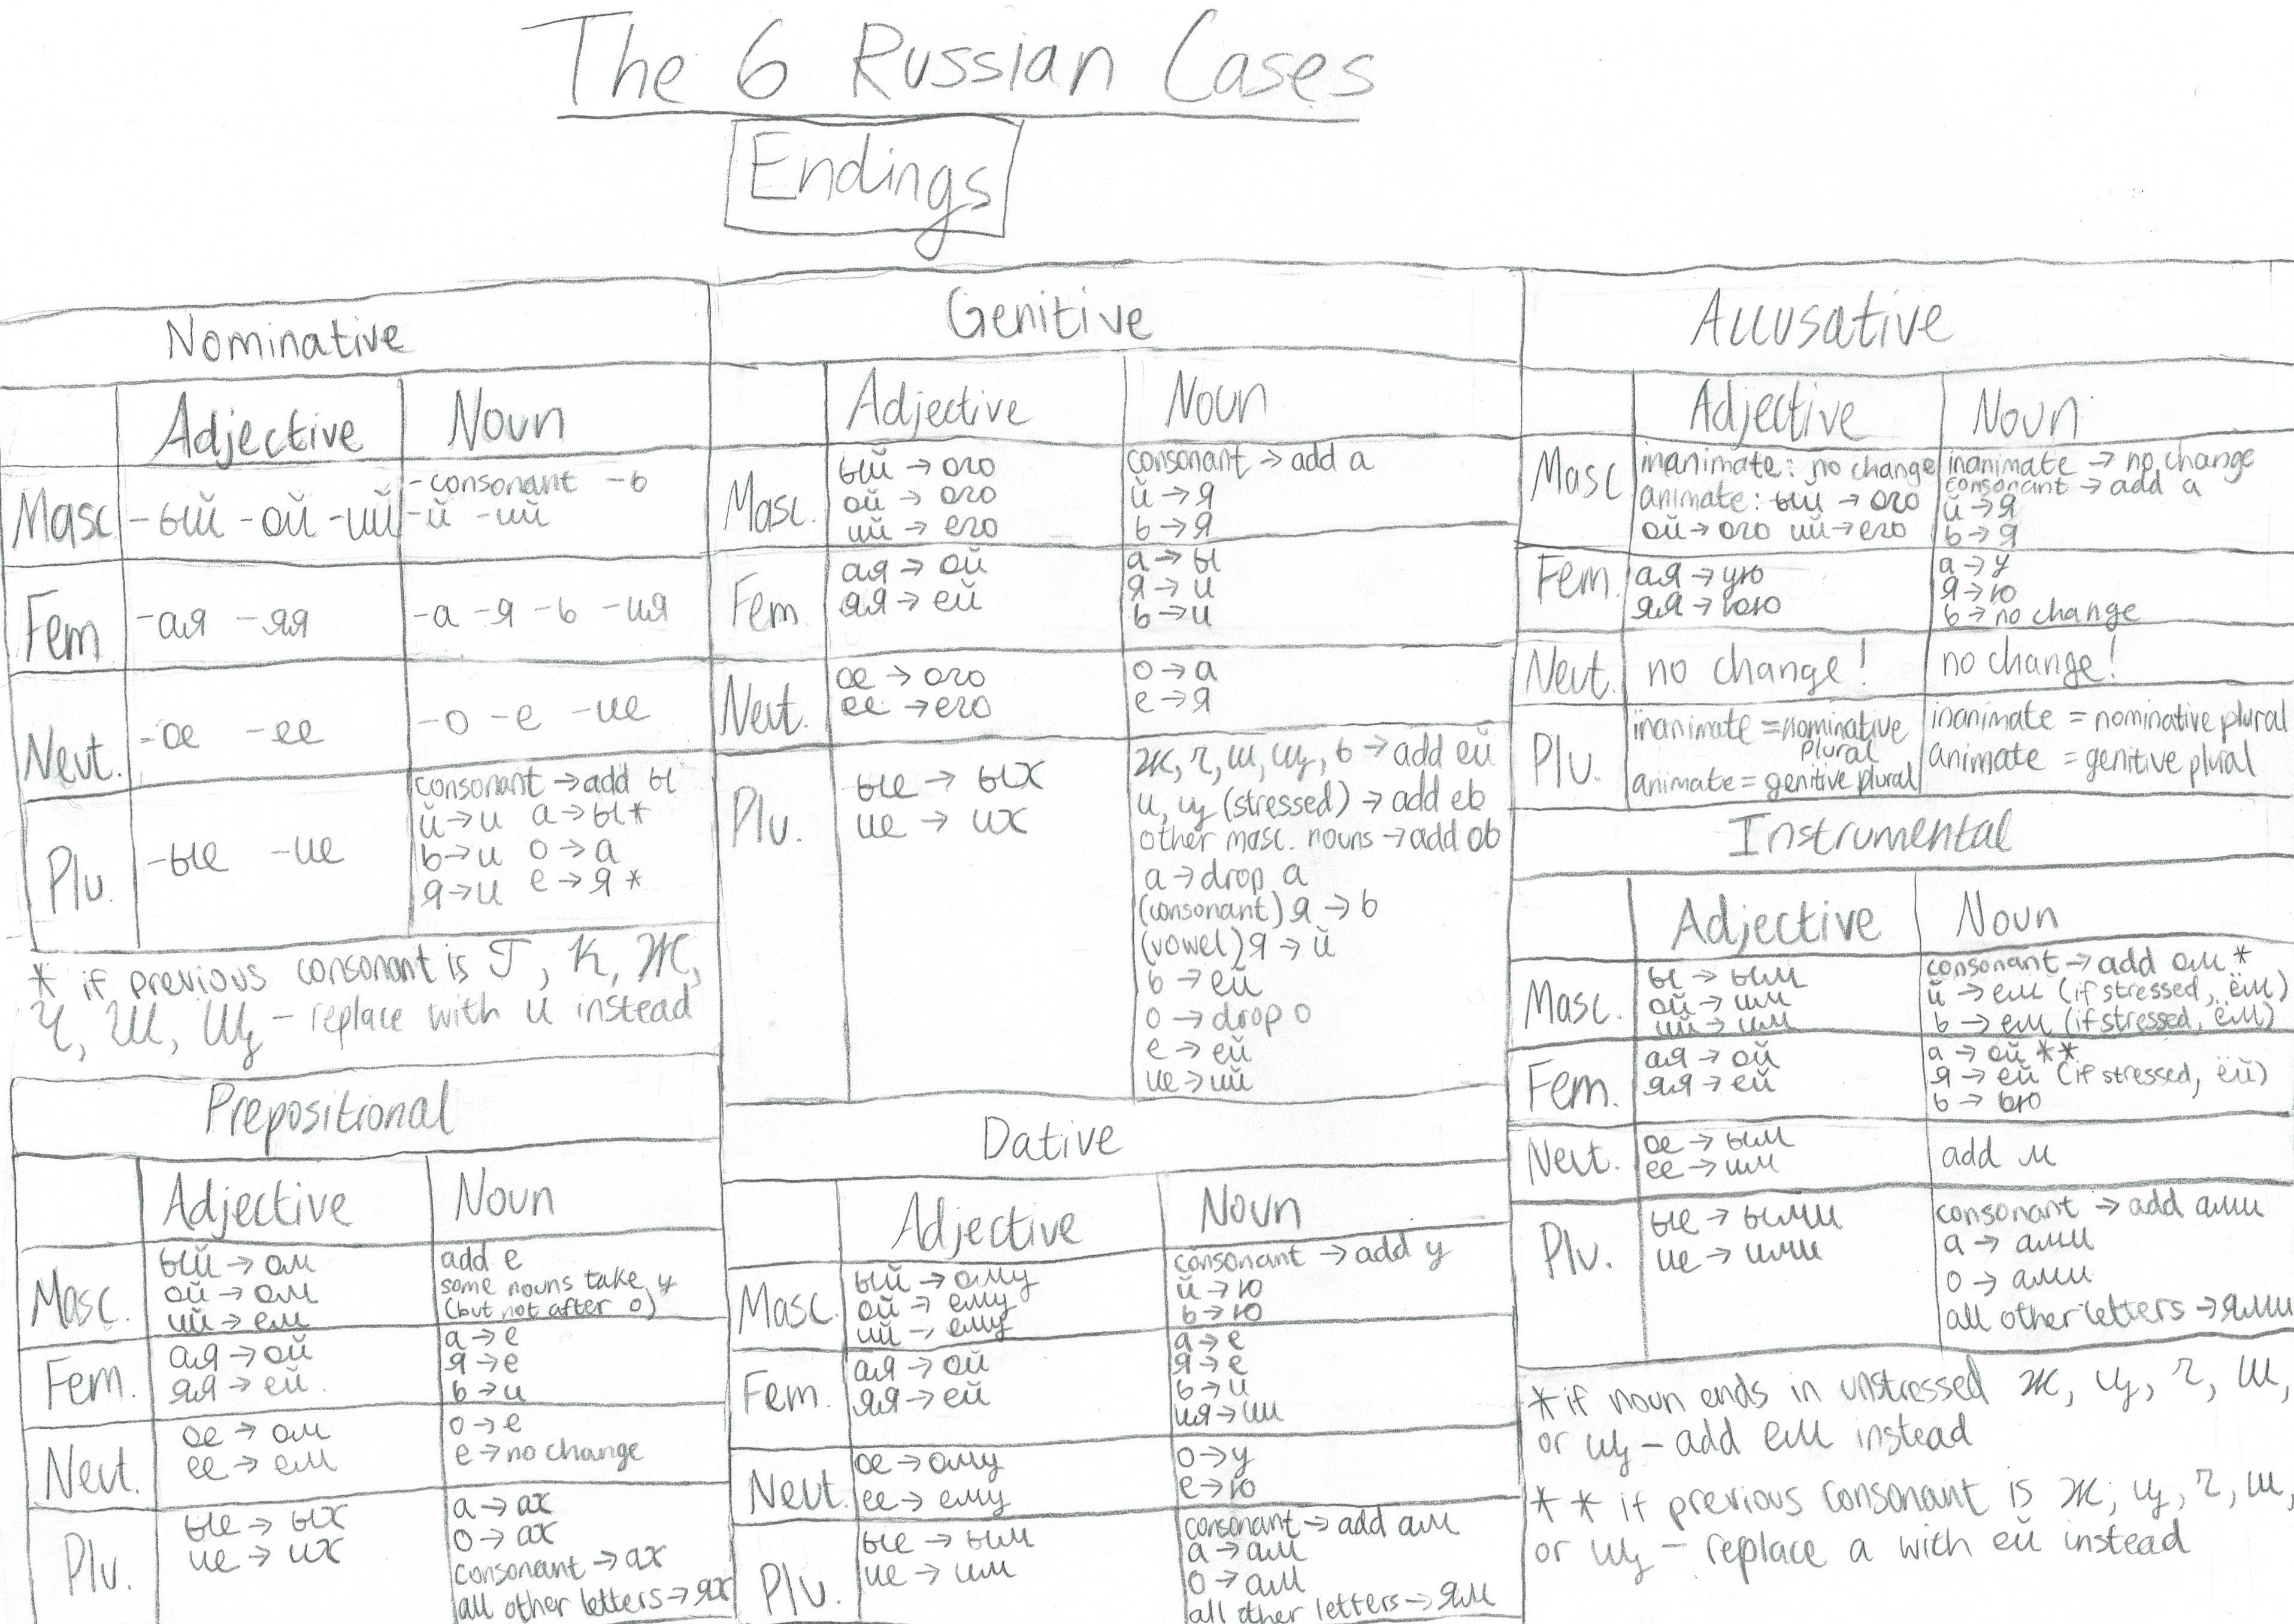 The 6 Russian Cases
Endings
Nominative
Adjective Noun
Masc -ый -ой -ий -consonant -ь
-й -ий
Fem -ая -яя -а -я -ь -ия
Neut. -ое -ее -о -е -ие
Plu. -ые -ие consonant → add ы
й → и а → ы*
ь → и о → а
я → и е → я *
* if previous consonant is Г, К, Ж,
Ч, Ш, Щ - replace with и instead
Genitive
Adjective Noun
Masc. ый → ого consonant → add а
ой → ого й → я
ий → его ь → я
Fem ая → ой а → ы
яя → ей я → и
ь → и
Neut. ое → ого о → а
ее → его е → я
Plu. ые → ых ж, ч, ш, щ, ь → add ей
ие → их й, ц (stressed) → add ев
other masc. nouns → add ов
а → drop а
(consonant) я → ь
(vowel) я → й
ь → ей
о → drop о
е → ей
ие → ий
Accusative
Adjective Noun
Masc inanimate: no change inanimate → no change
animate: ый → ого consonant → add а
ой → ого ий → его й → я
ь → я
Fem. ая → ую а → у
яя → юю я → ю
ь → no change
Neut. no change! no change!
Plu. inanimate = nominative plural inanimate = nominative plural
animate = genitive plural animate = genitive plural
Prepositional
Adjective Noun
Masc. ый → ом add е
ой → ом some nouns take у
ий → ем (but not after о)
Fem. ая → ой а → е
яя → ей я → е
ь → и
Neut. ое → ом о → е
ее → ем е → no change
Plu. ые → ых а → ах
ие → их о → ах
consonant → ах
all other letters → ях
Dative
Adjective Noun
Masc. ый → ому consonant → add у
ой → ему й → ю
ий → ему ь → ю
Fem. ая → ой а → е
яя → ей я → е
ь → и
ия → ии
Neut. ое → ому о → у
ее → ему е → ю
Plu. ые → ым consonant → add ам
ие → им а → ам
о → ам
all other letters → ям
Instrumental
Adjective Noun
Masc. ы → ым consonant → add ом *
ой → им й → ем (if stressed, ём)
ий → им ь → ем (if stressed, ём)
Fem. ая → ой а → ой **
яя → ей я → ей (if stressed, ёй)
ь → ью
Neut. ое → ым add м
ее → им
Plu. ые → ыми consonant → add ами
ие → ими а → ами
о → ами
all other letters → ями
* if noun ends in unstressed ж, ц, ч, ш,
or щ - add ем instead
* * if previous consonant is ж, ц, ч, ш,
or щ - replace а with ей instead